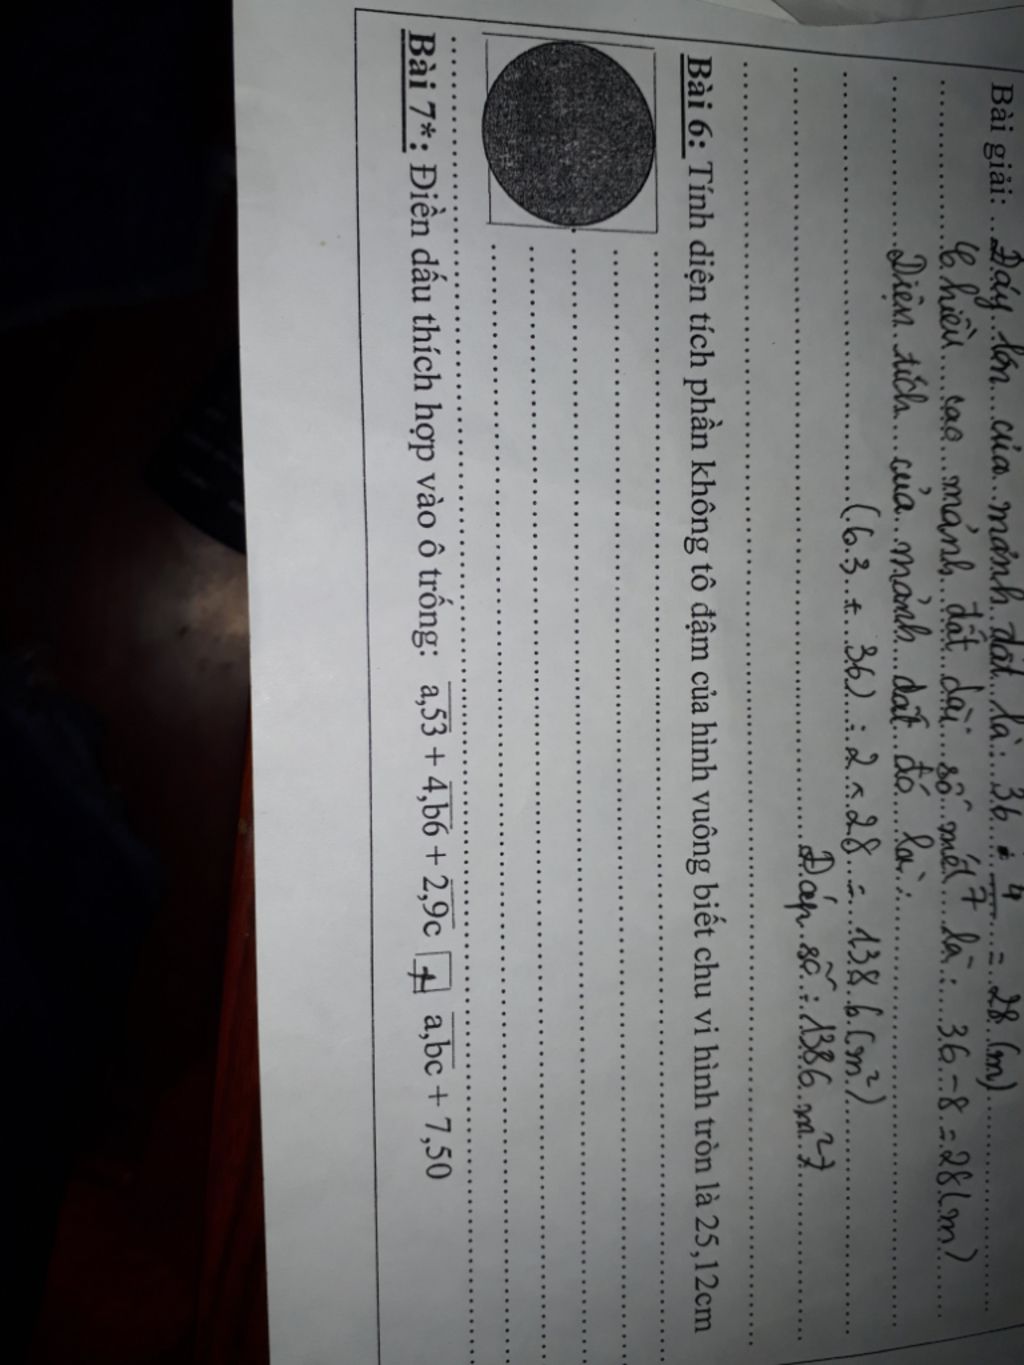 Bài giải: Đáy lớn của mảnh đất là: 36 : 4/7 = 28 (m)
Chiều cao mảnh đất dài số mét là: 36 - 8 = 28 (m)
Diện tích của mảnh đất đó là:
(63 + 36) : 2 × 28 = 1386 (m²)
Đáp số: 1386 m²
Bài 6: Tính diện tích phần không tô đậm của hình vuông biết chu vi hình tròn là 25,12cm
Bài 7*: Điền dấu thích hợp vào ô trống: a,53 + 4,b6 + 2,9c a,bc + 7,50